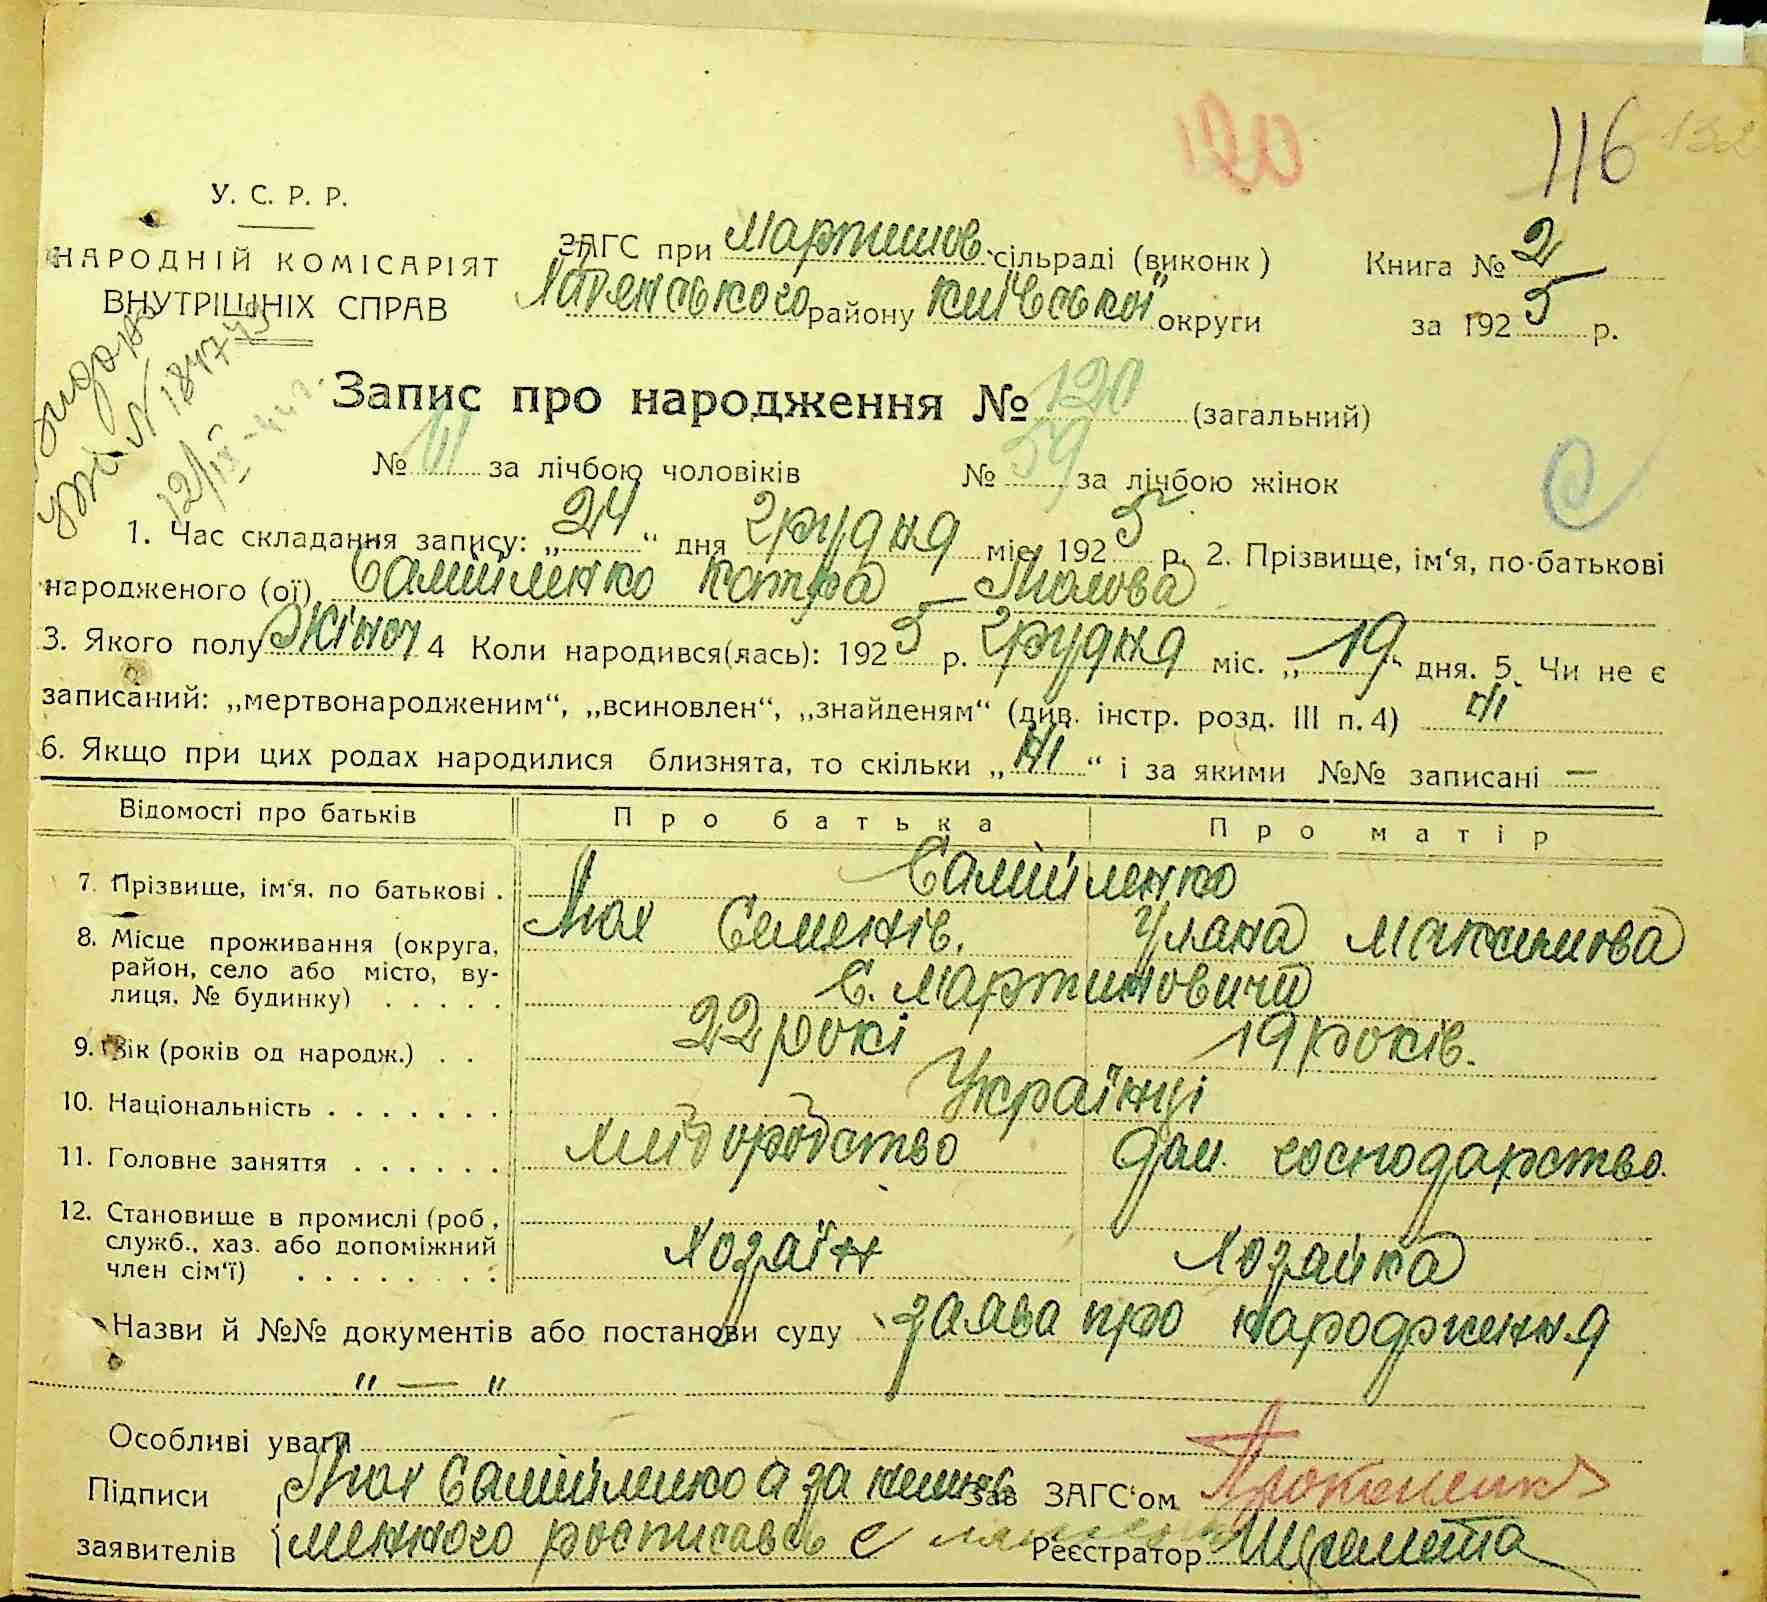 120
116 132
У. С. Р. Р.
НАРОДНІЙ КОМІСАРІЯТ
ВНУТРІШНІХ СПРАВ
ЗАГС при Мартинов. сільраді (виконк)
району Київської округи
Книга № 2
за 1925 р.
№ 184773
12/IX-44 г.
Запис про народження № 120 (загальний)
№ 61 за лічбою чоловіків № 59 за лічбою жінок
С
1. Час складання запису: „24“ дня Грудня міс. 1925 р. 2. Прізвище, ім‘я, по-батькові
народженого (ої) Самійленко Катря
3. Якого полу жіноч 4 Коли народився(лась): 1925 р. Грудня міс. „19“ дня. 5. Чи не є
записаний: „мертвонародженим“, „всиновлен“, „знайденям“ (див. інстр. розд. III п. 4) ні
6. Якщо при цих родах народилися близнята, то скільки „ні“ і за якими №№ записані —
Відомості про батьків Про батька Про матір
7. Прізвище, ім‘я, по батькові . Самійленко
Семенів. Уляна Максимова
8. Місце проживання (округа, район, село або місто, ву-
лиця, № будинку) . . . . . с. Мартиновичи
9. Вік (років од народж.) . . 22 рокі 19 років.
10. Національність . . . . . . . Українці
11. Головне заняття . . . . . . хліборобство дом. господарство.
12. Становище в промислі (роб.,
служб., хаз. або допоміжний
член сім‘ї) . . . . . . . . Хозяїн Хозяйка
Назви й №№ документів або постанови суду заява про народження
„ — „
Особливі уваги
Підписи Самійленко а за Зав ЗАГС‘ом
заявителів росписавсь Реєстратор Шеремета